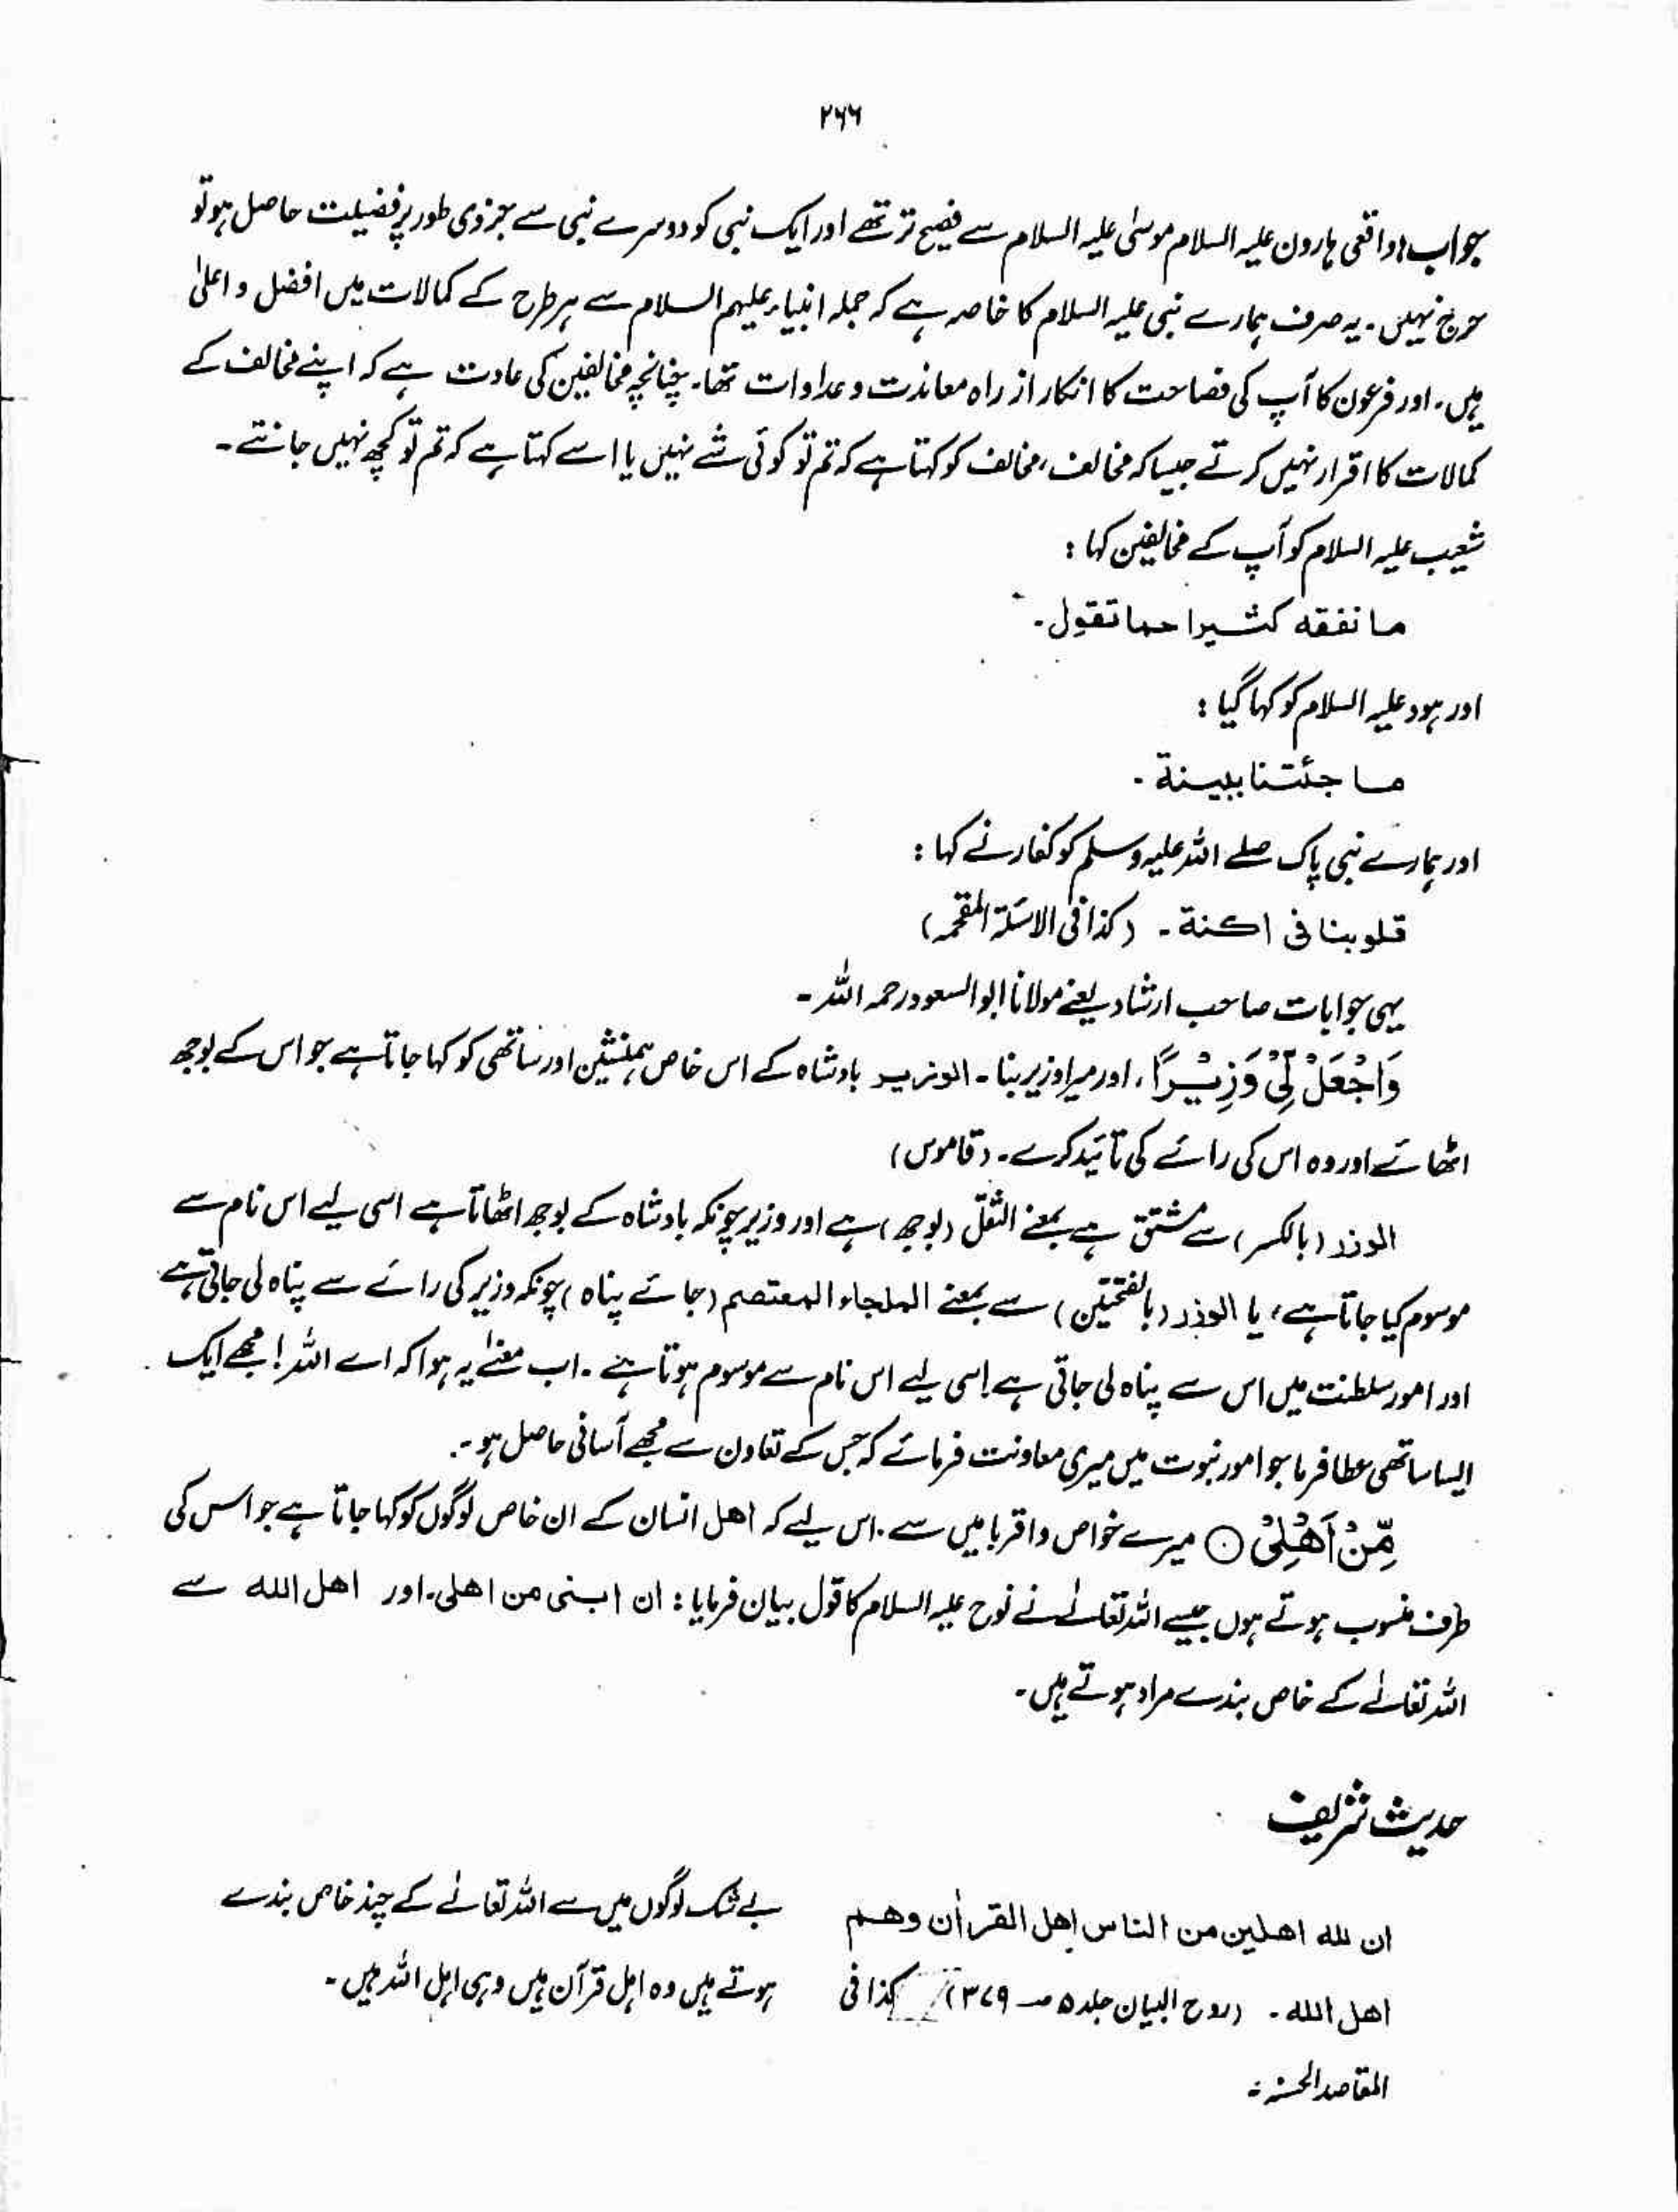 ۲۶۶
جواب: واقعی ہارون علیہ السلام موسٰی علیہ السلام سے فصیح تر تھے اور ایک نبی کو دوسرے نبی سے جزوی طور پر فضیلت حاصل ہو تو
حرج نہیں۔ یہ صرف ہمارے نبی علیہ السلام کا خاصہ ہے کہ جملہ انبیاء علیہم السلام سے ہر طرح کے کمالات میں افضل و اعلیٰ
ہیں۔ اور فرعون کا آپ کی فصاحت کا انکار از راہ معاندت و عداوات تھا۔ چنانچہ مخالفین کی عادت ہے کہ اپنے مخالف کے
کمالات کا اقرار نہیں کرتے جیسا کہ مخالف، مخالف کو کہتا ہے کہ تم تو کوئی شے نہیں یا اسے کہتا ہے کہ تم تو کچھ نہیں جانتے۔
شعیب علیہ السلام کو آپ کے مخالفین کہا :
ما نفقه كثيرا مما تقول۔
اور ہود علیہ السلام کو کہا گیا :
ما جئتنا ببينة۔
اور ہمارے نبی پاک صلے اللہ علیہ وسلم کو کفار نے کہا :
قلوبنا فى اكنة۔ (کذا فی الاسئلۃ المقحمہ)
یہی جوابات صاحب ارشاد یعنے مولانا ابوالسعود رحمہ اللہ۔
وَاجْعَلْ لِّیْ وَزِیْرًا، اور میرا وزیر بنا۔ الوزیر بادشاہ کے اس خاص ہمنشین اور ساتھی کو کہا جاتا ہے جو اس کے بوجھ
اٹھائے اور وہ اس کی رائے کی تائید کرے۔ (قاموس)
الوزر (بالکسر) سے مشتق ہے بمعنے الثقل (بوجھ) ہے اور وزیر چونکہ بادشاہ کے بوجھ اٹھاتا ہے اسی لیے اس نام سے
موسوم کیا جاتا ہے، یا الوزر (بالفتحتین) سے بمعنے الملجاء المعتصم (جائے پناہ) چونکہ وزیر کی رائے سے پناہ لی جاتی ہے
اور امور سلطنت میں اس سے پناہ لی جاتی ہے اسی لیے اس نام سے موسوم ہوتا ہے۔ اب معنےٰ یہ ہوا کہ اے اللہ! مجھے ایک
ایسا ساتھی عطا فرما جو امور نبوت میں میری معاونت فرمائے کہ جس کے تعاون سے مجھے آسانی حاصل ہو۔
مِّنْ اَهْلِیْ ○ میرے خواص و اقربا میں سے۔ اس لیے کہ اهل انسان کے ان خاص لوگوں کو کہا جاتا ہے جو اس کی
طرف منسوب ہوتے ہوں جیسے اللہ تعالےٰ نے نوح علیہ السلام کا قول بیان فرمایا : ان ابنی من اهلی۔ اور اهل الله سے
اللہ تعالےٰ کے خاص بندے مراد ہوتے ہیں۔
حدیث شریف
ان لله اهلين من الناس اهل القراٰن وهم
اهل الله۔ (روح البیان جلد ۵ صـ ۳۷۹) کذا فی
المقاصد الحسنہ۔
بے شک لوگوں میں سے اللہ تعالےٰ کے چند خاص بندے
ہوتے ہیں وہ اہل قرآن ہیں وہی اہل اللہ ہیں۔